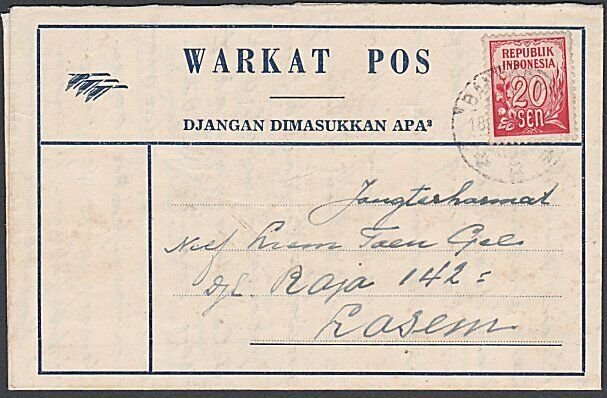 WARKAT POS
DJANGAN DIMASUKKAN APA²
REPUBLIK
INDONESIA
20
sen
Jangterhormat
Liem Toen
Djl. Raja 142=
Lasem